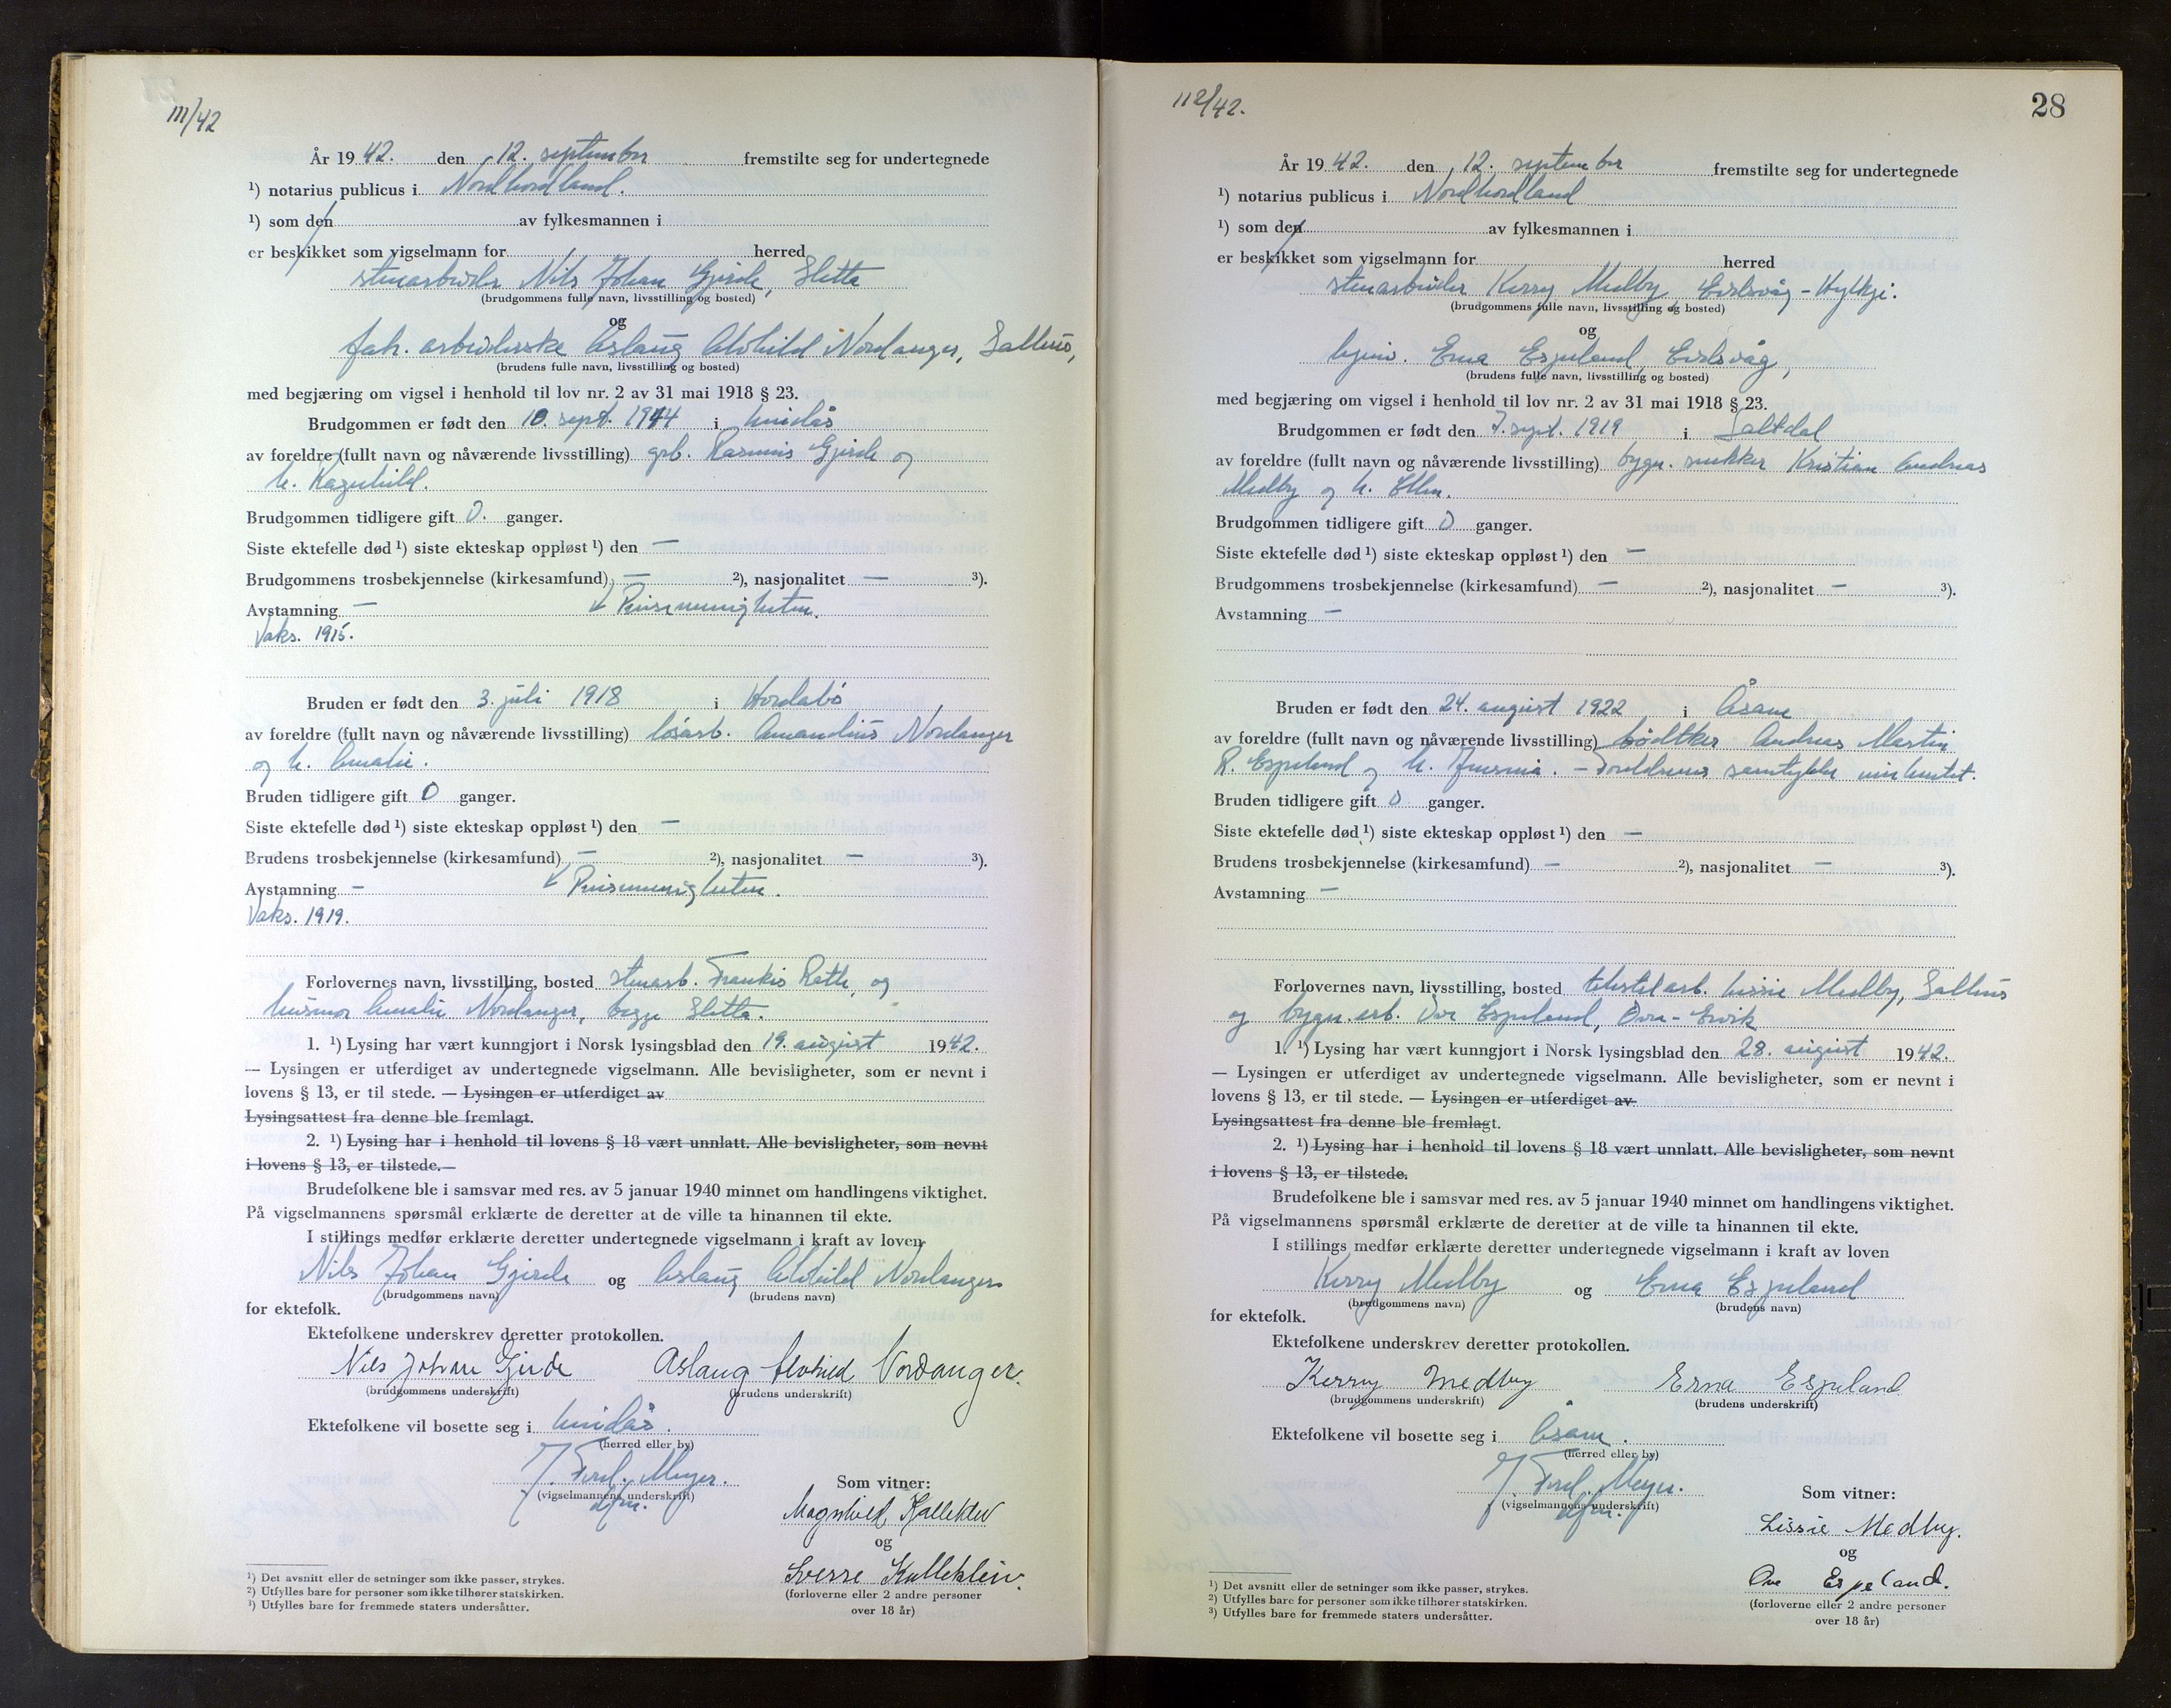 111/42
År 1942. den 12. september fremstilte seg for undertegnede
¹) notarius publicus i Nordhordland.
¹) som den av fylkesmannen i
er beskikket som vigselmann for herred
stenarbeider Nils Johan Gjerde, Sletta
(brudgommens fulle navn, livsstilling og bosted)
og
fab. arbeiderske Aslaug Alvhild Nordanger, Salhus,
(brudens fulle navn, livsstilling og bosted)
med begjæring om vigsel i henhold til lov nr. 2 av 31 mai 1918 § 23.
Brudgommen er født den 10. sept. 1914 i Lindås
av foreldre (fullt navn og nåværende livsstilling) grb. Rasmus Gjerde og
h. Ragnhild.
Brudgommen tidligere gift 0. ganger.
Siste ektefelle død ¹) siste ekteskap oppløst ¹) den —
Brudgommens trosbekjennelse (kirkesamfund) — ²), nasjonalitet — ³).
Avstamning — Pinsemenigheten.
Vaks. 1915.
Bruden er født den 3. juli 1918 i Hordabø
av foreldre (fullt navn og nåværende livsstilling) løsarb. Amandus Nordanger
og h. Amalie.
Bruden tidligere gift 0 ganger.
Siste ektefelle død ¹) siste ekteskap oppløst ¹) den —
Brudens trosbekjennelse (kirkesamfund) — ²), nasjonalitet — ³).
Avstamning — Pinsemenigheten.
Vaks. 1919.
Forlovernes navn, livsstilling, bosted stenarb. Frankis Rath, og
husmor Amalie Nordanger, begge Sletta.
1. ¹) Lysing har vært kunngjort i Norsk lysingsblad den 19. august 1942.
— Lysingen er utferdiget av undertegnede vigselmann. Alle bevisligheter, som er nevnt i
lovens § 13, er til stede. — Lysingen er utferdiget av
Lysingsattest fra denne ble fremlagt.
2. ¹) Lysing har i henhold til lovens § 18 vært unnlatt. Alle bevisligheter, som nevnt
i lovens § 13, er tilstede.—
Brudefolkene ble i samsvar med res. av 5 januar 1940 minnet om handlingens viktighet.
På vigselmannens spørsmål erklærte de deretter at de ville ta hinannen til ekte.
I stillings medfør erklærte deretter undertegnede vigselmann i kraft av loven
Nils Johan Gjerde og Aslaug Alvhild Nordanger
(brudgommens navn) (brudens navn)
for ektefolk.
Ektefolkene underskrev deretter protokollen.
Nils Johan Gjerde Aslaug Alvhild Nordanger.
(brudgommens underskrift) (brudens underskrift)
Ektefolkene vil bosette seg i Lindås.
(herred eller by)
Ferd. Meyer.
(vigselmannens underskrift)
dfm.
Som vitner:
Magnhild Kalleklev
og
Sverre Kalleklev.
(forloverne eller 2 andre personer
over 18 år)
¹) Det avsnitt eller de setninger som ikke passer, strykes.
²) Utfylles bare for personer som ikke tilhører statskirken.
³) Utfylles bare for fremmede staters undersåtter.
112/42.
28
År 1942. den 12. september fremstilte seg for undertegnede
¹) notarius publicus i Nordhordland
¹) som den av fylkesmannen i
er beskikket som vigselmann for herred
stenarbeider Kerry Medby, Eidsvåg - Hylkje.
(brudgommens fulle navn, livsstilling og bosted)
og
hjemv. Erna Espeland, Eidsvåg,
(brudens fulle navn, livsstilling og bosted)
med begjæring om vigsel i henhold til lov nr. 2 av 31 mai 1918 § 23.
Brudgommen er født den 7. sept. 1919 i Saltdal
av foreldre (fullt navn og nåværende livsstilling) bygn. snekker Kristian Andreas
Medby og h. Ellen.
Brudgommen tidligere gift 0 ganger.
Siste ektefelle død ¹) siste ekteskap oppløst ¹) den —
Brudgommens trosbekjennelse (kirkesamfund) — ²), nasjonalitet — ³).
Avstamning —
Bruden er født den 24. august 1922 i Åsane
av foreldre (fullt navn og nåværende livsstilling) bødtker Andreas Martin
R. Espeland og h. — Foreldrenes samtykke innhentet.
Bruden tidligere gift 0 ganger.
Siste ektefelle død ¹) siste ekteskap oppløst ¹) den —
Brudens trosbekjennelse (kirkesamfund) — ²), nasjonalitet — ³).
Avstamning —
Forlovernes navn, livsstilling, bosted tekstilarb. Lissie Medby, Salhus
og bygn. arb. Ove Espeland, Øvre-Ervik
1. ¹) Lysing har vært kunngjort i Norsk lysingsblad den 28. august 1942.
— Lysingen er utferdiget av undertegnede vigselmann. Alle bevisligheter, som er nevnt i
lovens § 13, er til stede. — Lysingen er utferdiget av
Lysingsattest fra denne ble fremlagt.
2. ¹) Lysing har i henhold til lovens § 18 vært unnlatt. Alle bevisligheter, som nevnt
i lovens § 13, er tilstede.
Brudefolkene ble i samsvar med res. av 5 januar 1940 minnet om handlingens viktighet.
På vigselmannens spørsmål erklærte de deretter at de ville ta hinannen til ekte.
I stillings medfør erklærte deretter undertegnede vigselmann i kraft av loven
Kerry Medby og Erna Espeland
(brudgommens navn) (brudens navn)
for ektefolk.
Ektefolkene underskrev deretter protokollen.
Kerry Medby Erna Espeland
(brudgommens underskrift) (brudens underskrift)
Ektefolkene vil bosette seg i Åsane.
(herred eller by)
Ferd. Meyer.
(vigselmannens underskrift)
dfm.
Som vitner:
Lissie Medby.
og
Ove Espeland.
(forloverne eller 2 andre personer
over 18 år)
¹) Det avsnitt eller de setninger som ikke passer, strykes.
²) Utfylles bare for personer som ikke tilhører statskirken.
³) Utfylles bare for fremmede staters undersåtter.